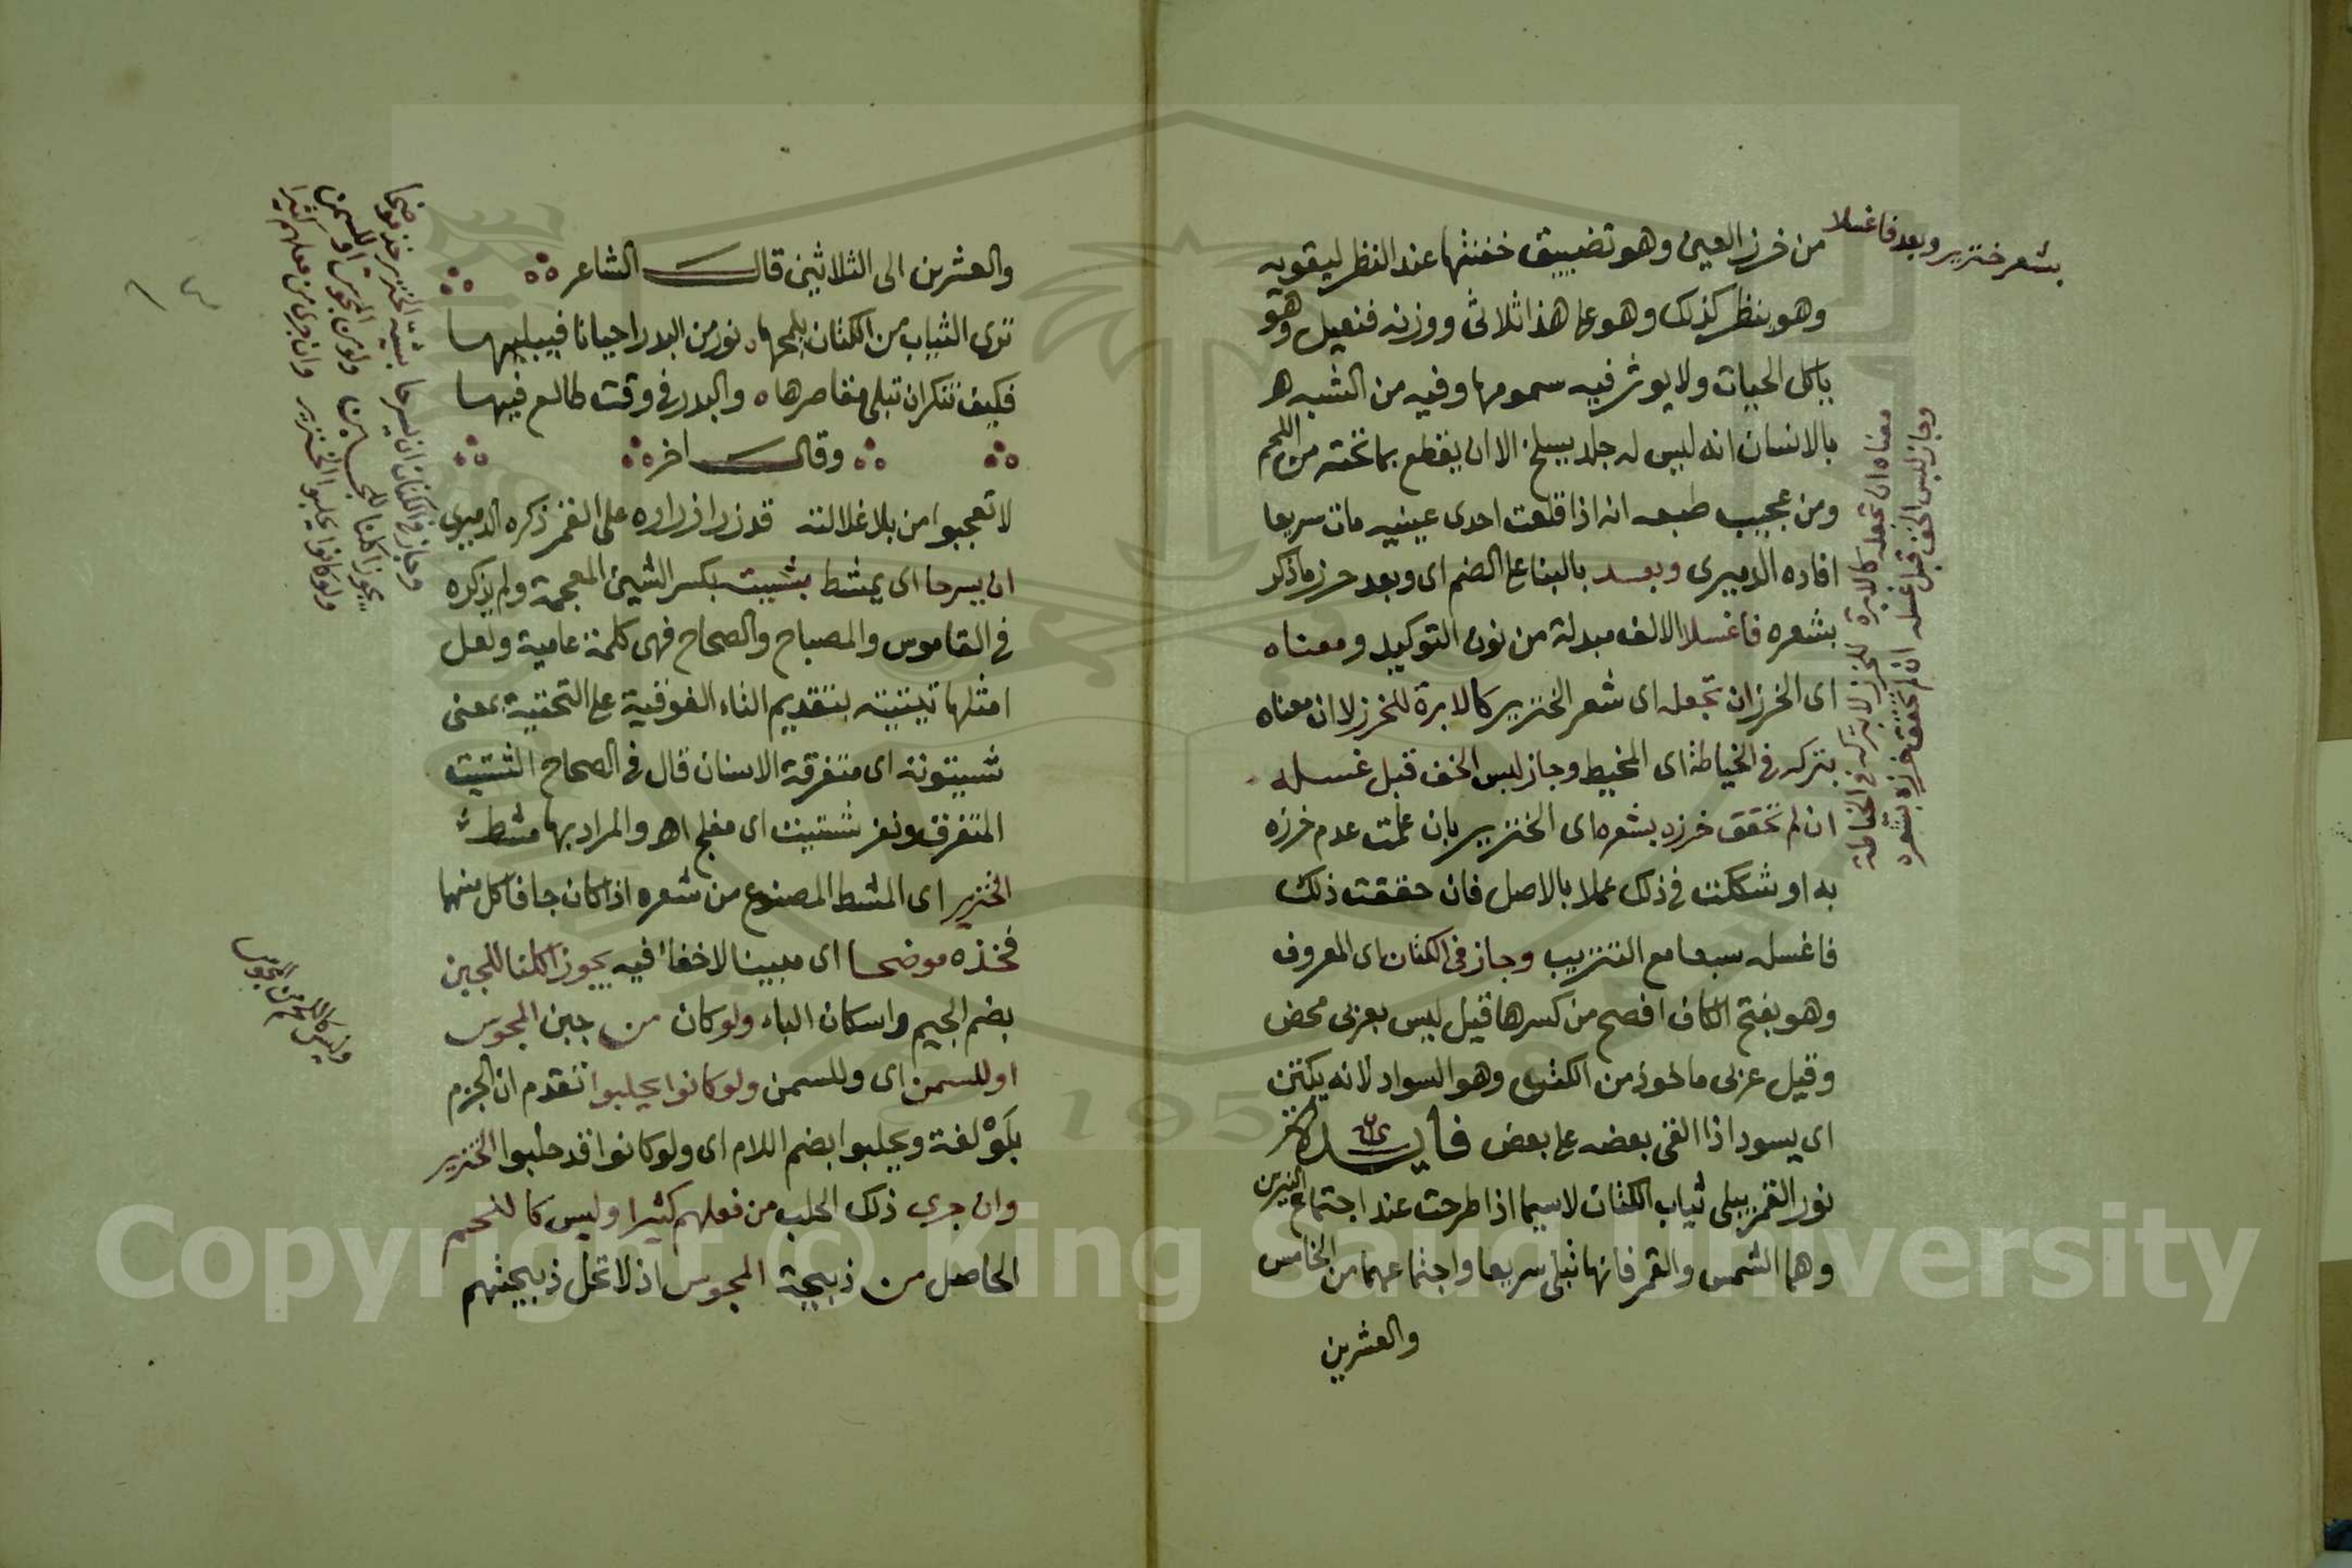 من خرز العين وهو تضييق خفنها عند النظر ليقويه
وهو ينظر كذلك وهو على هذا ثلاثى ووزنه فنعيل وهو
ياكل الحيات ولا يوثر فيه سمومها وفيه من الشبه
بالانسان انه ليس له جلد يسلخ الا ان يقطع بما تحته من اللحم
ومن عجيب طبعه انه اذا قلعت احدى عينيه مات سريعا
افاده الدميرى وبعد بالبنا على الضم اى وبعد حرز ما ذكر
بشعره فاغسلا الالف مبدلة من نون التوكيد ومعناه
اى الخرز ان تجعله اى شعر الخنزير كالابرة للخرز لا ان معناه
بتركه فى الخياطة اى المخيط وجاز لبس الخف قبل غسله
ان لم تحقق خرزه بشعره اى الخنزير بان علمت عدم خرزه
به او شككت فى ذلك عملا بالاصل فان حققت ذلك
فاغسله سبعا مع التتريب وجاز فى الكتان اى المعروف
وهو بفتح الكاف افصح من كسرها قيل ليس بعربى محض
وقيل عربى ماخوذ من الكتن وهو السواد لانه يكتن
اى يسود اذا القى بعضه على بعض فايدة
نور القمر يبلى ثياب الكتان لاسيما اذا طرحت عند اجتماع النيرين
وهما الشمس والقمر فانها تبلى سريعا واجتماعهما من الخامس
والعشرين
بشعر خنزير وبعد فاغسلا
معناه ان تجعله كالابرة للخرز لا بتركه فى الخياطة
وجاز لبس الخف قبل غسله ان لم تحقق خرزه بشعره
والعشرين الى الثلاثين قال الشاعر
ترى الثياب من الكتان يلمحها نور من البدر احيانا فيبليها
فكيف تنكر ان تبلى مقاصرها والبدر فى وقت طالع فيها
وقال اخر
لا تعجبوا من بلا غلالته قد زر ازراره على القمر ذكره الدميرى
ان يسرحا اى يمشط بشيت بكسر الشين المعجمة ولم يذكره
فى القاموس والمصباح والصحاح فهى كلمة عامية ولعل
اصلها بتقديم التاء الفوقية على التحتية بمعنى
اى متفرقة الاسنان قال فى الصحاح الشتيت
المتفرق وثغر شتيت اى مفلج اهـ والمراد بها مشط
الخنزير اى المشط المصنوع من شعره اذا كان جافا كل منهما
فخذه موضحا اى مبينا لا خفا فيه يجوز اكلنا للجبن
بضم الجيم واسكان الباء ولو كان من جبن المجوس
او للسمن اى وللسمن ولو كانوا يحلبوا تقدم ان الجزم
بلو لغة ويحلبوا بضم اللام اى ولو كانوا قد حلبوا الخنزير
وان جرى ذلك الحلب من فعلهم كثيرا وليس كاللحم
الحاصل من ذبيحة المجوس اذ لا تحل ذبيحتهم
وجاز فى الكتان ان يسرحا بشيت الخنزير خذ موضحا
يجوز اكلنا للجبن ولو من المجوس او للسمن
ولو كانوا يحلبوا الخنزير وان جرى من فعلهم كثيرا
وليس كاللحم من المجوس
١٤
Copyright © King Saud University
195